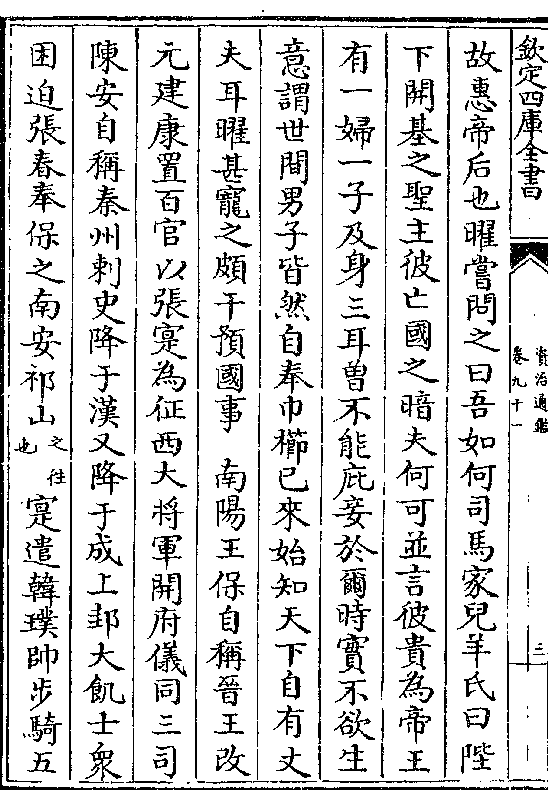 欽定四庫全書
資治通鑑
卷九十一
三
故惠帝后也曜嘗問之曰吾如何司馬家兒羊氏曰陛
下開基之聖主彼亡國之暗夫何可並言彼貴為帝王
有一婦一子及身三耳曽不能庇妾於爾時實不欲生
意謂世間男子皆然自奉巾櫛已來始知天下自有丈
夫耳曜甚寵之頗干預國事 南陽王保自稱晉王改
元建康置百官以張寔為征西大將軍開府儀同三司
陳安自稱秦州刺史降于漢又降于成上邽大飢士衆
困迫張春奉保之南安祁山之往也寔遣韓璞帥步騎五